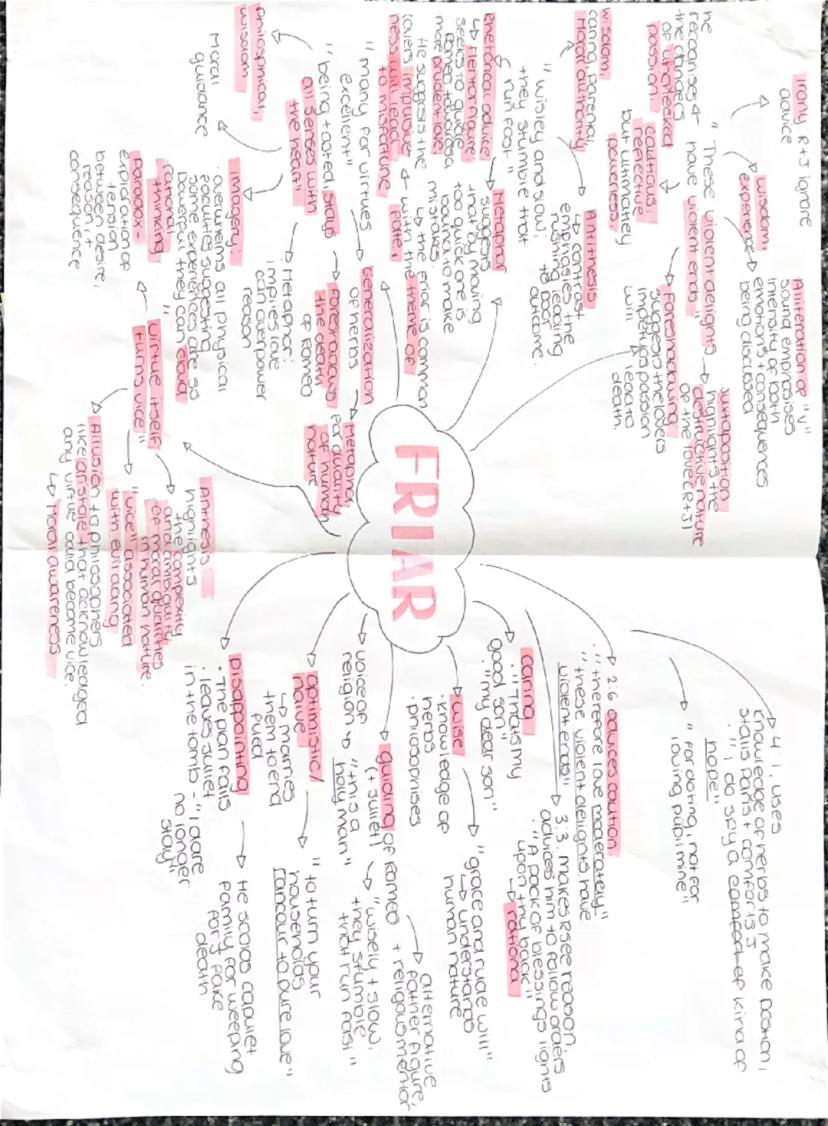 FRIAR
Irony: R+J ignore
advice
wisdom,
experience
"These violent delights
have violent ends"
he
recognises
the dangers
of unchecked
passion.
cautious,
reflective
but ultimatley
powerless.
Alliteration of "v"
sound emphasises
intensity of both
emotions + consequences
being discussed
juxtaposition
highlights the
destructive nature
of their love (R+J)
Foreshadowing
suggests the lovers
impetuous passion
will lead to
death.
wisdom,
caring, parental,
Moral authority
"wisley and slow,
they stumble that
run fast"
Antithesis
↳ contrast
emphasies the
rushing leading
to poor
outcome.
Metaphor
suggests
that by moving
too quick one is
bound to make
mistakes
Rhetorical advice
↳ Mentor figure
seeks to guide
Romeo towards a
more prudent love
He suggests the
lovers impulsive
ness will lead
to misfortune
↳ the error is common
with the theme of
fate.
"many for virtues
excellent"
Generalization
of herbs
Metaphor
for duality
of human
nature
"being tasted, slays
all senses with
the heart"
philosphical,
wisdom
Moral
guidance
Imagery:
overwhelms all physical
faculties suggesting
some experiences are so
powerful they can cloud
rational
thinking
Metaphor:
implies love
can overpower
reason
Foreshadows
the death
of Romeo
"Virtue itself
turns vice"
Paradox -
exploration of
tension
between desire,
reason, +
consequence
Antithesis:
highlights
the complexity
and ambiguity
of moral qualities
in human nature.
"vice" associated
with evil doing
Allusion to philosophers
like aristotle that acknowledged
any virtue could become vice.
↳ Moral awareness
4:1, uses
knowledge of herbs to make potion,
stalls Paris + comforts J
"I do spy a kind of
hope"
"For doting, not for
loving pupil mine"
2:6 advices caution
"therefore love moderately"
"these violent delights have
violent ends"
3:3. makes R see reason
advices him to follow orders
"A pack of blessings lights
upon thy back"
→ rational
caring
"Thats my
good son"
"my dear son"
wise
knowledge of
herbs
philosophises
"grace and rude will"
↳ understands
human nature
guiding of Romeo
(+ Juliet)
→ alternative
father figure,
+ religous mentor
"wisely + slow,
they stumble
that run fast"
voice of
religion
"this a
holy man"
optimistic/
naive
↳ marries
them to end
fued
"to turn your
households
rancour to pure love"
Disappointing
The plan fails
leaves Juliet
in the tomb - "I dare
no longer
stay"
He scolds capulet
family for weeping
for J fake
death